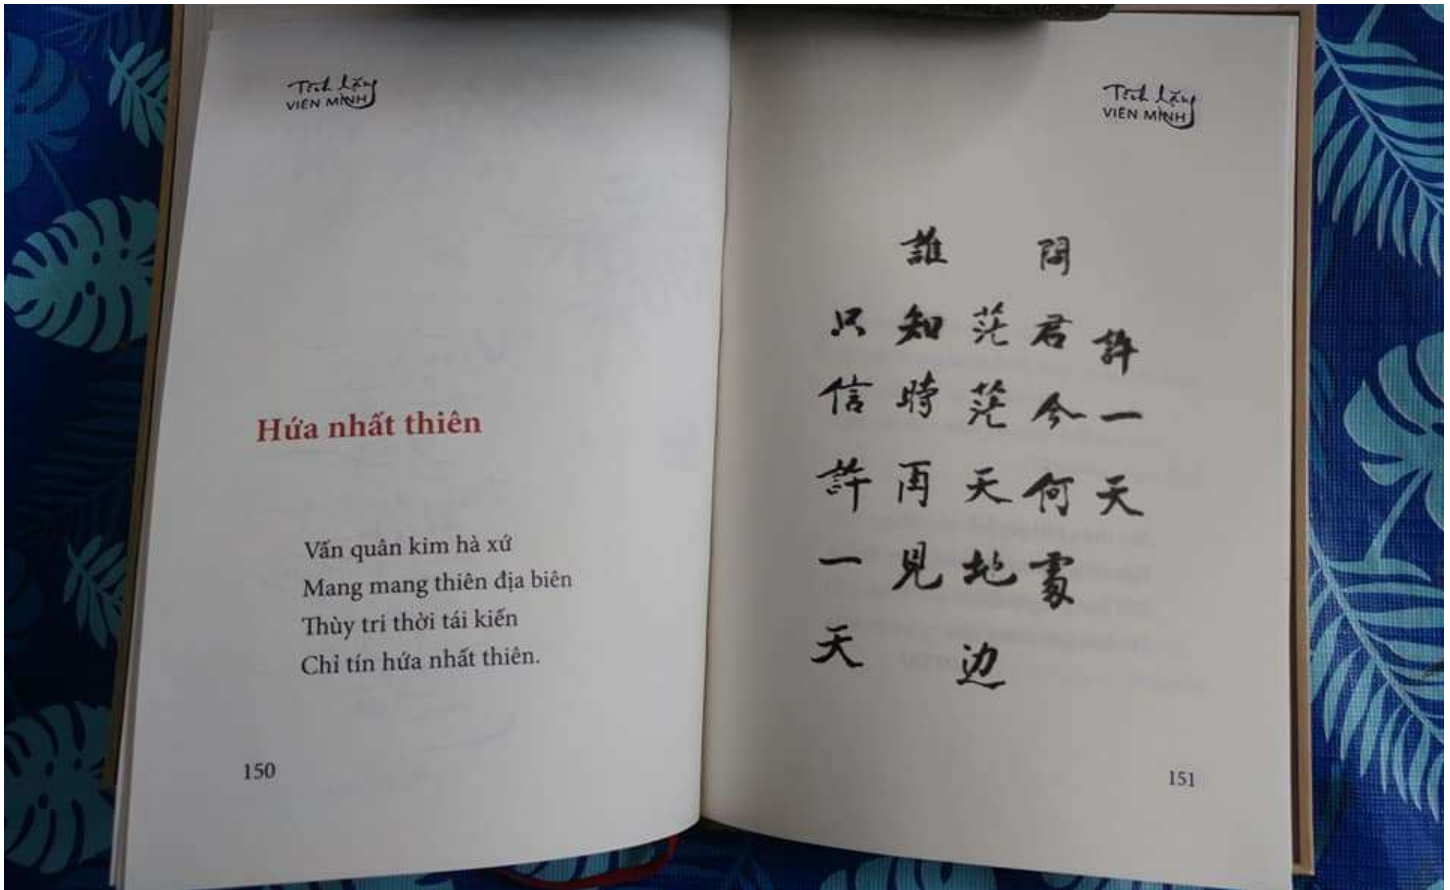 Tĩnh lặng
VIÊN MINH
Hứa nhất thiên
Vấn quân kim hà xứ
Mang mang thiên địa biên
Thùy tri thời tái kiến
Chỉ tín hứa nhất thiên.
150
Tĩnh lặng
VIÊN MINH
許一天
問君今何處
茫茫天地边
誰知時再見
只信許一天
151